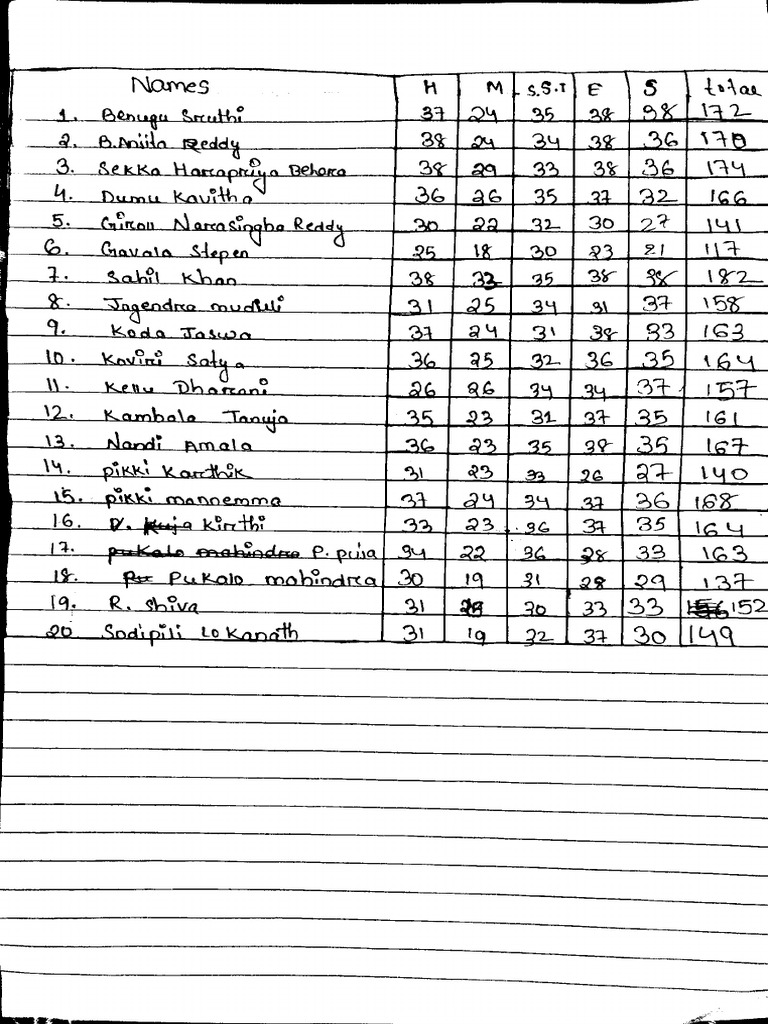 Names H M S.S.T E S total
1. Benugu Sruthi 37 24 35 38 38 172
2. B.Anita Reddy 38 24 34 38 36 170
3. Sekka Harapriya Behera 38 29 33 38 36 174
4. Dumu Kavitha 36 26 35 37 32 166
5. Giron Narasingha Reddy 30 22 32 30 27 141
6. Gavala Stepen 25 18 30 23 21 117
7. Sahil Khan 38 33 35 38 38 182
8. Jagendra muduli 31 25 34 31 37 158
9. Koda Jaswa 37 24 31 38 33 163
10. Koviri Satya 36 25 32 36 35 164
11. Kellu Dharani 26 26 34 34 37 157
12. Kambala Tanuja 35 23 31 37 35 161
13. Nandi Amala 36 23 35 38 35 167
14. pikki Karthik 31 23 33 26 27 140
15. pikki mannemma 37 24 34 37 36 168
16. Kirthi 33 23 36 37 35 164
17. pukalo mahindra P. puja 34 22 36 28 33 163
18. Pukalo mahindra 30 19 31 28 29 137
19. R. Shiva 31 30 33 33 152
20 Sodipili lokanath 31 19 32 37 30 149